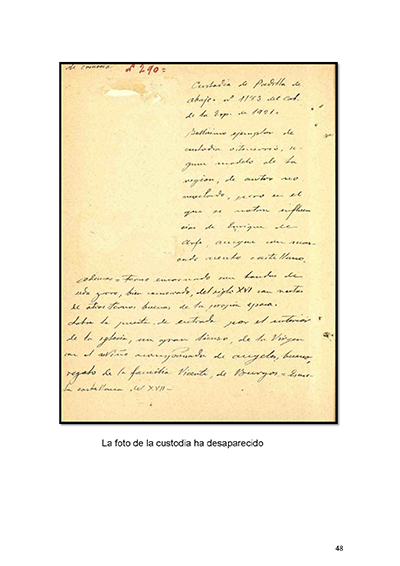 nº 290=
Custodia de Padilla de
abajo. nº 1143 del Cat.
de la Exp. de 1921.
Bellísimo ejemplar de
custodia
modelo de la
region, de autor no
pero en el
que se notan influen
cias de Enrique de
Arfe, aunque con
acento castellano.
terno encarnado con bandas de
oro, bien conservado, del siglo XVI con restos
de otros ternos buenos de la propia epoca.
Sobre la puerta de entrada por el interior
de la iglesia, un gran lienzo, de la Virgen
con el Niño acompañada de angeles, bueno
regalo de la familia Vicente, de Burgos = Escue
la castellana del XVII-
La foto de la custodia ha desaparecido
48